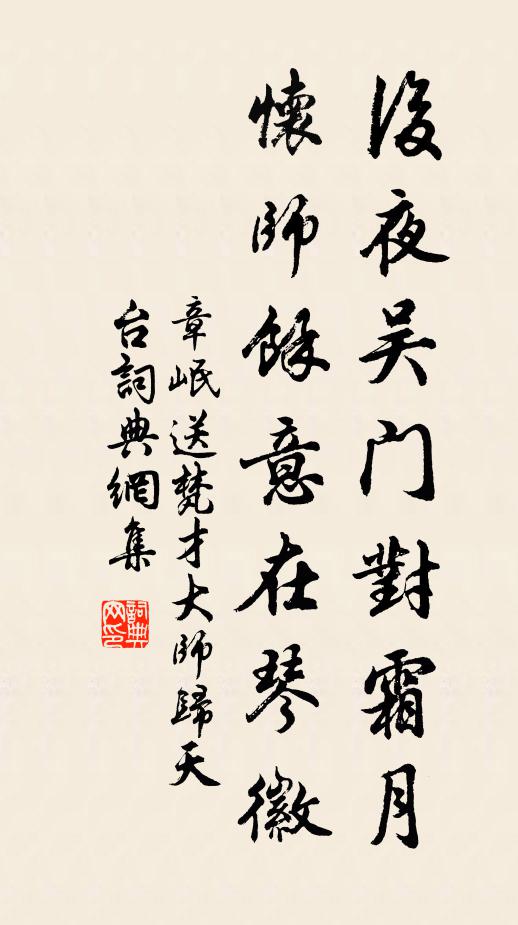 後夜吴門對霜月
懷師餘意在琴徽
章岷送梵才大師歸天
台詞典網集
詞典网印